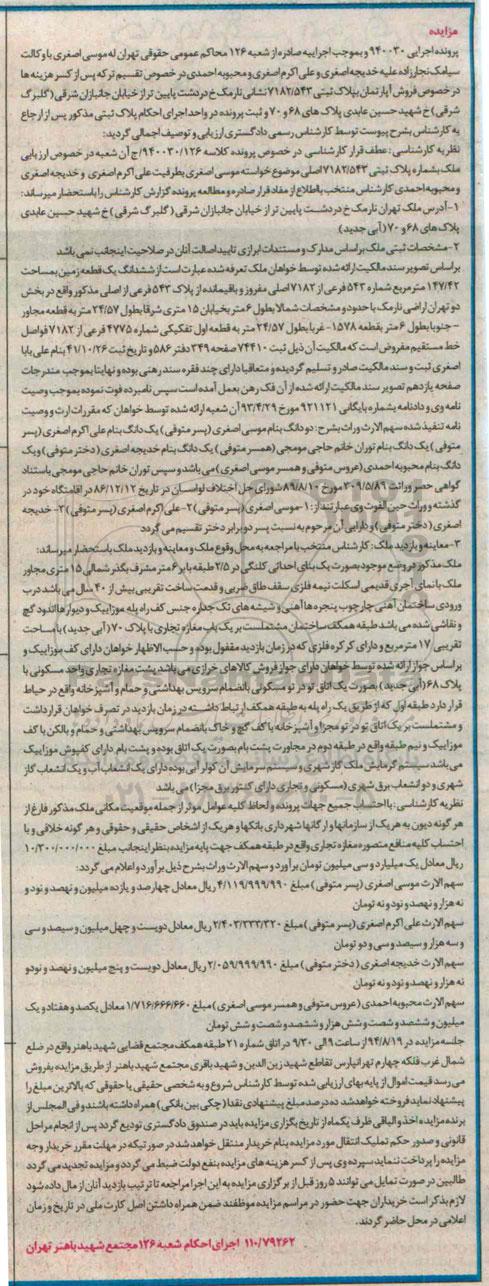 مزایده
پرونده اجرایی ۹۴۰۰۳۰ و بموجب اجراییه صادره از شعبه ۱۲۶ محاکم عمومی حقوقی تهران له موسی اصغری با وکالت
سیامک نجارزاده علیه خدیجه اصغری و علی اکرم اصغری و محبوبه احمدی در خصوص تقسیم ترکه پس از کسر هزینه ها
در خصوص فروش آپارتمان بپلاک ثبتی ۷۱۸۲/۵۴۳ نشانی نارمک خ دردشت پایین تر از خیابان جانبازان شرقی (گلبرگ
شرقی) خ شهید حسین عابدی پلاک های ۶۸ و ۷۰ و ثبت پرونده در واحد اجرای احکام پلاک ثبتی مذکور پس از ارجاع
به کارشناس بشرح پیوست توسط کارشناس رسمی دادگستری ارزیابی و توصیف اجمالی گردید:
نظریه کارشناسی: عطف قرار کارشناسی در خصوص پرونده کلاسه ۹۴۰۰۳۰/۱۲۶/ج آن شعبه در خصوص ارزیابی
ملک بشماره پلاک ثبتی ۷۱۸۲/۵۴۳ اصلی موضوع خواسته موسی اصغری بطرفیت علی اکرم اصغری و خدیجه اصغری
و محبوبه احمدی کارشناس منتخب با اطلاع از مفاد قرار صادره و مطالعه پرونده گزارش کارشناس را باستحضار میرساند:
۱-آدرس ملک تهران نارمک خ دردشت پایین تر از خیابان جانبازان شرقی (گلبرگ شرقی) خ شهید حسین عابدی
پلاک های ۶۸ و ۷۰ (آبی جدید)
۲-مشخصات ثبتی ملک براساس مدارک و مستندات ابرازی تایید اصالت آنان در صلاحیت اینجانب نمی باشد
براساس تصویر سند مالکیت ارائه شده توسط خواهان ملک تعرفه شده عبارت است از ششدانگ یک قطعه زمین بمساحت
۱۴۷/۴۲ متر مربع شماره ۵۴۳ فرعی از ۷۱۸۲ اصلی مفروز و باقیمانده از پلاک ۵۴۳ فرعی از اصلی مذکور واقع در بخش
دو تهران اراضی نارمک با حدود و مشخصات شمالا بطول ۶ متر بخیابان ۱۵ متری شرقا بطول ۲۴/۵۷ متر به قطعه مجاور
- جنوبا بطول ۶ متر بقطعه ۱۵۷۸- غربا بطول ۲۴/۵۷ متر به قطعه اول تفکیکی شماره ۴۷۷۵ فرعی از ۷۱۸۲ فواصل
خط مستقیم مفروض است که مالکیت آن ذیل ثبت ۷۴۴۱۰ صفحه ۳۴۹ دفتر ۵۸۶ و تاریخ ثبت ۴۱/۱۰/۲۶ بنام علی بابا
اصغری ثبت و سند مالکیت صادر و تسلیم گردیده و متعاقبا دارای چند فقره سند رهنی بوده و نهایتا بموجب مندرجات
صفحه یازدهم تصویر سند مالکیت ارائه شده از آن فک رهن بعمل آمده است سپس نامبرده فوت نموده بموجب وصیت
نامه وی و دادنامه بشماره بایگانی ۹۲۱۱۲۱ مورخ ۹۳/۴/۲۹ آن شعبه ارائه شده توسط خواهان که مقررات ارث و وصیت
نامه تنفیذ شده سهم الارث وراث بشرح: دو دانگ بنام موسی اصغری (پسر متوفی) یک دانگ بنام علی اکرم اصغری (پسر
متوفی) یک دانگ بنام توران خانم حاجی مومجی (همسر متوفی) یک دانگ بنام خدیجه اصغری (دختر متوفی) و یک
دانگ بنام محبوبه احمدی (عروس متوفی و همسر موسی اصغری) می باشد و سپس توران خانم حاجی مومجی باستناد
گواهی حصر وراثت ۳۰۹/۵/۸۹ مورخ ۸۹/۸/۱۰ شورای حل اختلاف لواسان در تاریخ ۸۶/۱۲/۱۲ در اقامتگاه خود در
گذشته و وراث حین الفوت وی عبارتند از: ۱-موسی اصغری (پسر متوفی) ۲-علی اکرم اصغری (پسر متوفی) ۳-خدیجه
اصغری (دختر متوفی) و دارایی آن مرحوم به نسبت پسر دو برابر دختر تقسیم می گردد
۳-معاینه و بازدید ملک: کارشناس منتخب با مراجعه به محل وقوع ملک و معاینه و بازدید ملک باستحضار میرساند:
ملک مذکور در وضع موجود بصورت یک بنای احداثی کلنگی در ۲/۵ طبقه با بر ۶ متر مشرف بگذر شمالی ۱۵ متری مجاور
ملک با نمای آجری قدیمی اسکلت نیمه فلزی سقف طاق ضربی و قدمت ساخت تقریبی بیش از ۴۰ سال می باشد درب
ورودی ساختمان آهنی چارچوب پنجره ها آهنی و شیشه های تک جداره جنس کف راه پله موزاییک و دیوارها اندود گچ
و نقاشی شده می باشد طبقه همکف ساختمان مشتملست بر یک باب مغازه تجاری با پلاک ۷۰ (آبی جدید) با مساحت
تقریبی ۱۷ متر مربع و دارای کرکره فلزی که در زمان بازدید مقفول بوده و حسب الاظهار خواهان دارای کف موزاییک و
براساس جواز ارائه شده توسط خواهان دارای جواز فروش کالاهای خرازی می باشد پشت مغازه تجاری واحد مسکونی با
پلاک ۶۸ (آبی جدید) بصورت یک اتاق تو در تو مسکونی بانضمام سرویس بهداشتی و حمام و آشپزخانه واقع در حیاط
قرار دارد طبقه اول که از طریق یک راه پله به طبقه همکف ارتباط داشته در زمان بازدید در تصرف خواهان قرار داشت
و مشتملست بر یک اتاق تو در تو مجزا و آشپزخانه با کف گچ و خاک بانضمام سرویس بهداشتی و حمام و بالکن با کف
موزاییک و نیم طبقه واقع در طبقه دوم در مجاورت پشت بام بصورت یک اتاق بوده و پشت بام دارای کفپوش موزاییک
می باشد سیستم گرمایش ملک گاز شهری و سیستم سرمایش آن کولر آبی بوده دارای یک انشعاب آب و یک انشعاب گاز
شهری و دو انشعاب برق شهری (مسکونی و تجاری دارای کنتور برق مجزا) می باشد
نظریه کارشناسی: با احتساب جمیع جهات پرونده و لحاظ کلیه عوامل موثر از جمله موقعیت مکانی ملک مذکور فارغ از
هر گونه دیون به هر یک از سازمانها و ارگانها شهرداری بانکها و هر یک از اشخاص حقیقی و حقوقی و هر گونه خلافی و با
احتساب کلیه منافع متصوره مغازه تجاری واقع در طبقه همکف جهت پایه مزایده بنظر اینجانب مبلغ ۱۰/۳۰۰/۰۰۰/۰۰۰
ریال معادل یک میلیارد و سی میلیون تومان برآورد و سهم الارث وراث بشرح ذیل برآورد و اعلام می گردد:
سهم الارث موسی اصغری (پسر متوفی) مبلغ ۴/۱۱۹/۹۹۹/۹۹۰ ریال معادل چهارصد و یازده میلیون و نهصد و نود و
نه هزار و نهصد و نود و نه تومان
سهم الارث علی اکرم اصغری (پسر متوفی) مبلغ ۲/۴۰۳/۳۳۳/۳۲۰ ریال معادل دویست و چهل میلیون و سیصد و سی
و سه هزار و سیصد و سی و دو تومان
سهم الارث خدیجه اصغری (دختر متوفی) مبلغ ۲/۰۵۹/۹۹۹/۹۹۰ ریال معادل دویست و پنج میلیون و نهصد و نود و
نه هزار و نهصد و نود و نه تومان
سهم الارث محبوبه احمدی (عروس متوفی و همسر موسی اصغری) مبلغ ۱/۷۱۶/۶۶۶/۶۶۰ معادل یکصد و هفتاد و یک
میلیون و ششصد و شصت و شش هزار و ششصد و شصت و شش تومان
جلسه مزایده در ۹۴/۸/۱۹ از ساعت ۹ الی ۹/۳۰ در اتاق شماره ۲۱ طبقه همکف مجتمع قضایی شهید باهنر واقع در ضلع
شمال غرب فلکه چهارم تهرانپارس تقاطع شهید زین الدین و شهید باقری مجتمع شهید باهنر از طریق مزایده بفروش
می رسد قیمت اموال از پایه بهای ارزیابی شده توسط کارشناس شروع و به شخصی حقیقی یا حقوقی که بالاترین مبلغ را
پیشنهاد نماید فروخته خواهد شد ده درصد مبلغ پیشنهادی نقدا (چکی بین بانکی) همراه داشته باشند و فی المجلس از
برنده مزایده اخذ و الباقی ظرف یکماه از تاریخ بگزاری مزایده باید در صندوق دادگستری تودیع گردد پس از انجام مراحل
قانونی و صدور حکم تملیک انتقال مورد مزایده بنام خریدار منتقل خواهد شد در صورتیکه در مهلت مقرر خریدار وجه
مزایده را پرداخت ننماید سپرده وی پس از کسر هزینه های مزایده بنفع دولت ضبط می گردد و مزایده تجدید می گردد
طالبین در صورت تمایل می توانند ۵ روز قبل از برگزاری مزایده به این اجرا مراجعه تا ترتیب بازدید آنان از مال داده شود
لازم بذکر است خریداران جهت حضور در مراسم مزایده موظفند ضمن همراه داشتن اصل کارت ملی در تاریخ و زمان
اعلامی در محل حاضر گردند.
۱۱۰/۷۹۲۶۲ اجرای احکام شعبه ۱۲۶ مجتمع شهید باهنر تهران